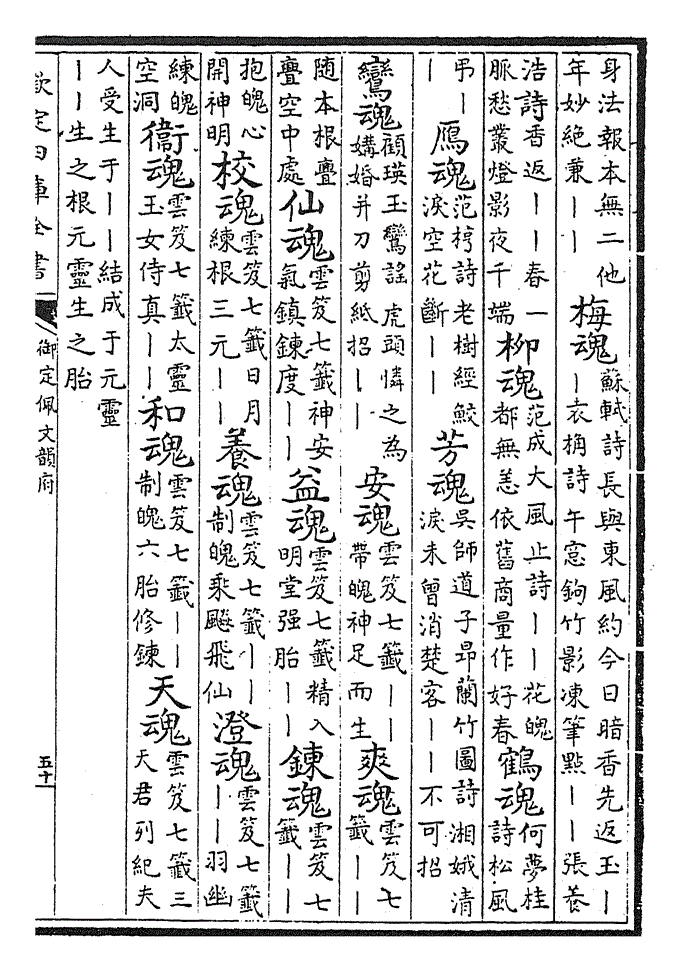 身法報本無二他年妙絶兼丨丨梅魂蘇軾詩長與東風約今日暗香先返玉丨丨袁桷詩午窓鉤竹影凍筆㸃丨丨張養
浩詩香返丨丨春一脈愁叢燈影夜千端柳魂范成大風止詩丨丨花魄都無恙依舊商量作好春鶴魂何夢桂詩松風
弔丨丨鴈魂范梈詩老樹經鮫淚空花斷丨丨芳魂吳師道子昂蘭竹圖詩湘娥清淚未曾消楚客丨丨不可招
鸞魂顧瑛玉鸞謡虎頭憐之為媾婚并刀剪紙招丨丨安魂雲笈七籤丨丨帶魄神足而生爽魂雲笈七籤丨丨
隨本根疊疊空中處仙魂雲笈七籤神安氣鎮鍊度丨丨益魂雲笈七籤精入明堂强胎丨丨鍊魂雲笈七籤丨丨
抱魄心開神明校魂雲笈七籤日月練根三元丨丨養魂雲笈七籤丨丨制魄乘飈飛仙澄魂雲笈七籤丨丨羽幽
練魄空洞衞魂雲笈七籤太靈玉女侍真丨丨和魂雲笈七籤丨丨制魄六胎修鍊天魂雲笈七籤三天君列紀夫
人受生于丨丨結成于元靈丨丨生之根元靈生之胎
欽定四庫全書
御定佩文韻府
五十